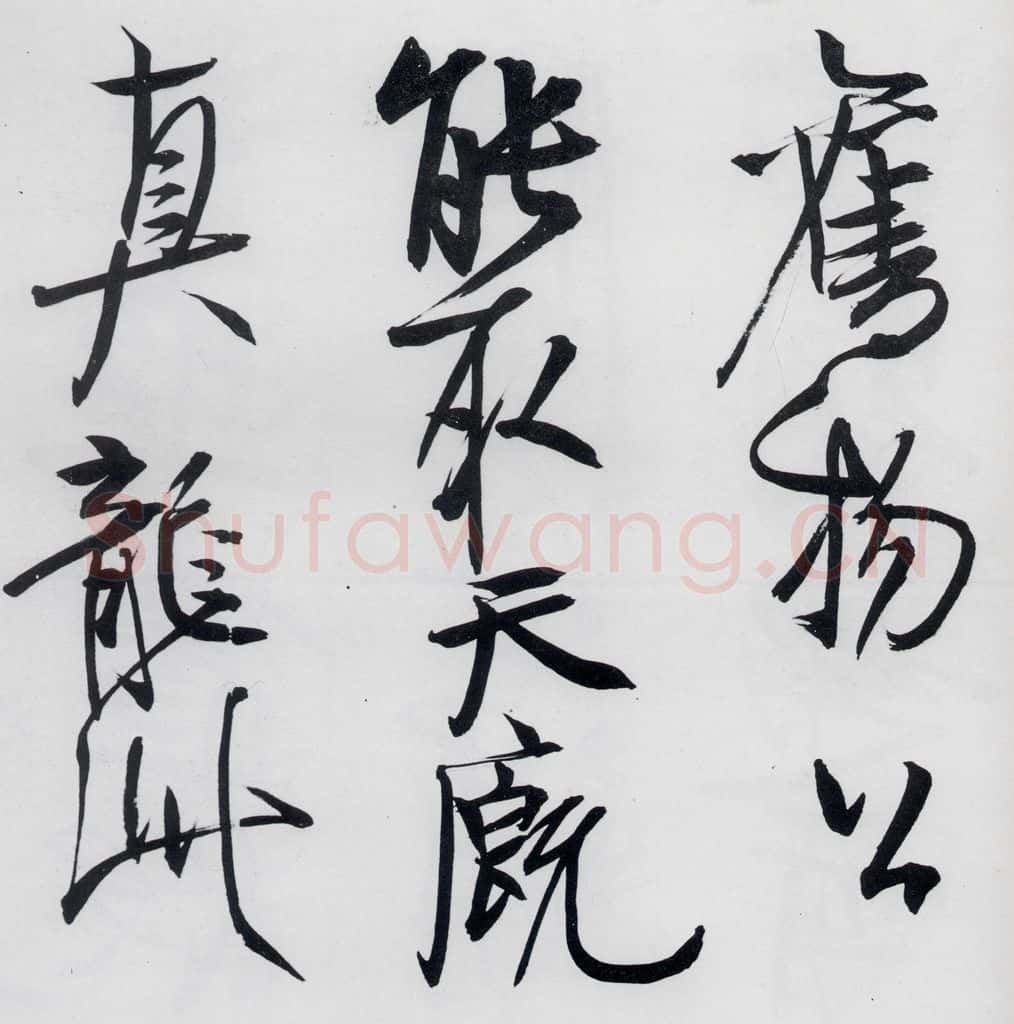 應物公
能取天廐
真龍此
Shufawang.CN